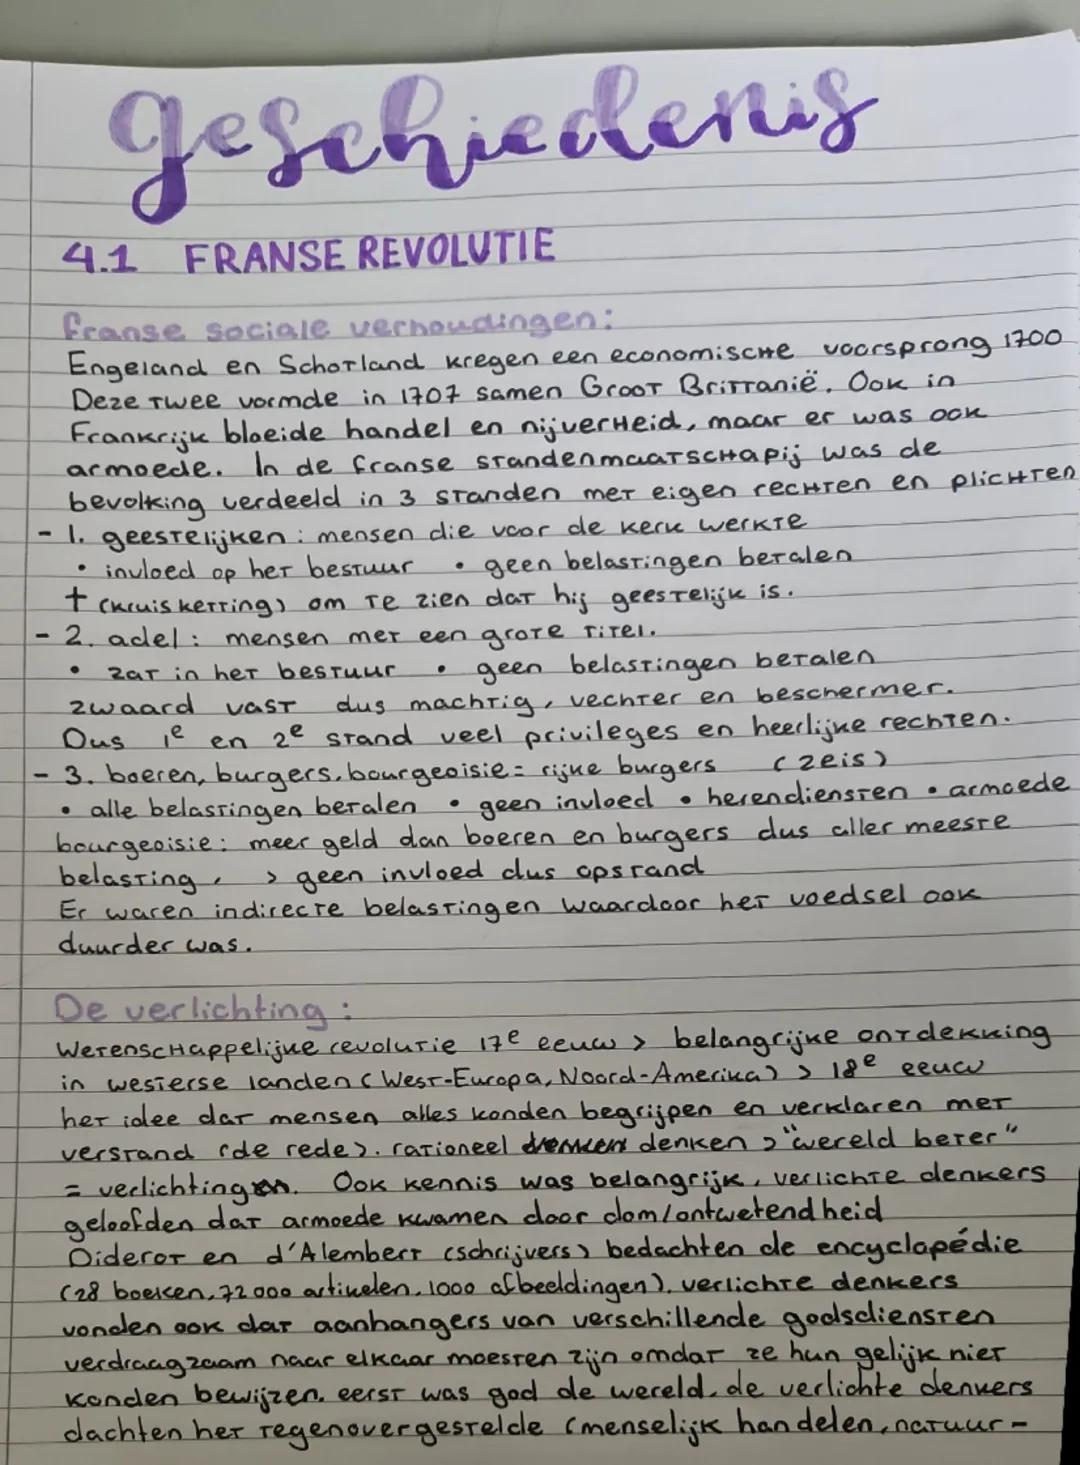 geschiedenis
4.1 FRANSE REVOLUTIE
Franse sociale verhoudingen:
Engeland en Schotland kregen een economische voorsprong 1700
Deze twee vormde in 1707 samen Groot Brittanië. Ook in
Frankrijk bloeide handel en nijverheid, maar er was ook
armoede. In de franse standenmaatschapij was de
bevolking verdeeld in 3 standen met eigen rechten en plichten
- 1. geestelijken: mensen die voor de kerk werkte
• invloed op het bestuur • geen belastingen betalen
† (kruisketting) om te zien dat hij geestelijk is.
- 2. adel: mensen met een grote titel.
• zat in het bestuur • geen belastingen betalen
zwaard vast dus machtig, vechter en beschermer.
Dus 1e en 2e stand veel privileges en heerlijke rechten.
- 3. boeren, burgers, bourgeoisie = rijke burgers (zeis)
• alle belastingen betalen • geen invloed • herendiensten • armoede
bourgeoisie: meer geld dan boeren en burgers dus aller meeste
belasting, > geen invloed dus opstand
Er waren indirecte belastingen waardoor het voedsel ook
duurder was.
De verlichting:
Wetenschappelijke revolutie 17e eeuw > belangrijke ontdekking
in westerse landen (West-Europa, Noord-Amerika) > 18e eeuw
het idee dat mensen alles konden begrijpen en verklaren met
verstand (de rede). rationeel denken > "wereld beter"
= verlichting. Ook kennis was belangrijk, verlichte denkers
geloofden dat armoede kwamen door dom/ontwetendheid
Diderot en d'Alembert (schrijvers) bedachten de encyclopédie
(28 boeken, 72000 artikelen, 1000 afbeeldingen). verlichte denkers
vonden ook dat aanhangers van verschillende godsdiensten
verdraagzaam naar elkaar moesten zijn omdat ze hun gelijk niet
konden bewijzen. eerst was god de wereld. de verlichte denkers
dachten het tegenovergestelde (menselijk handelen, natuur-